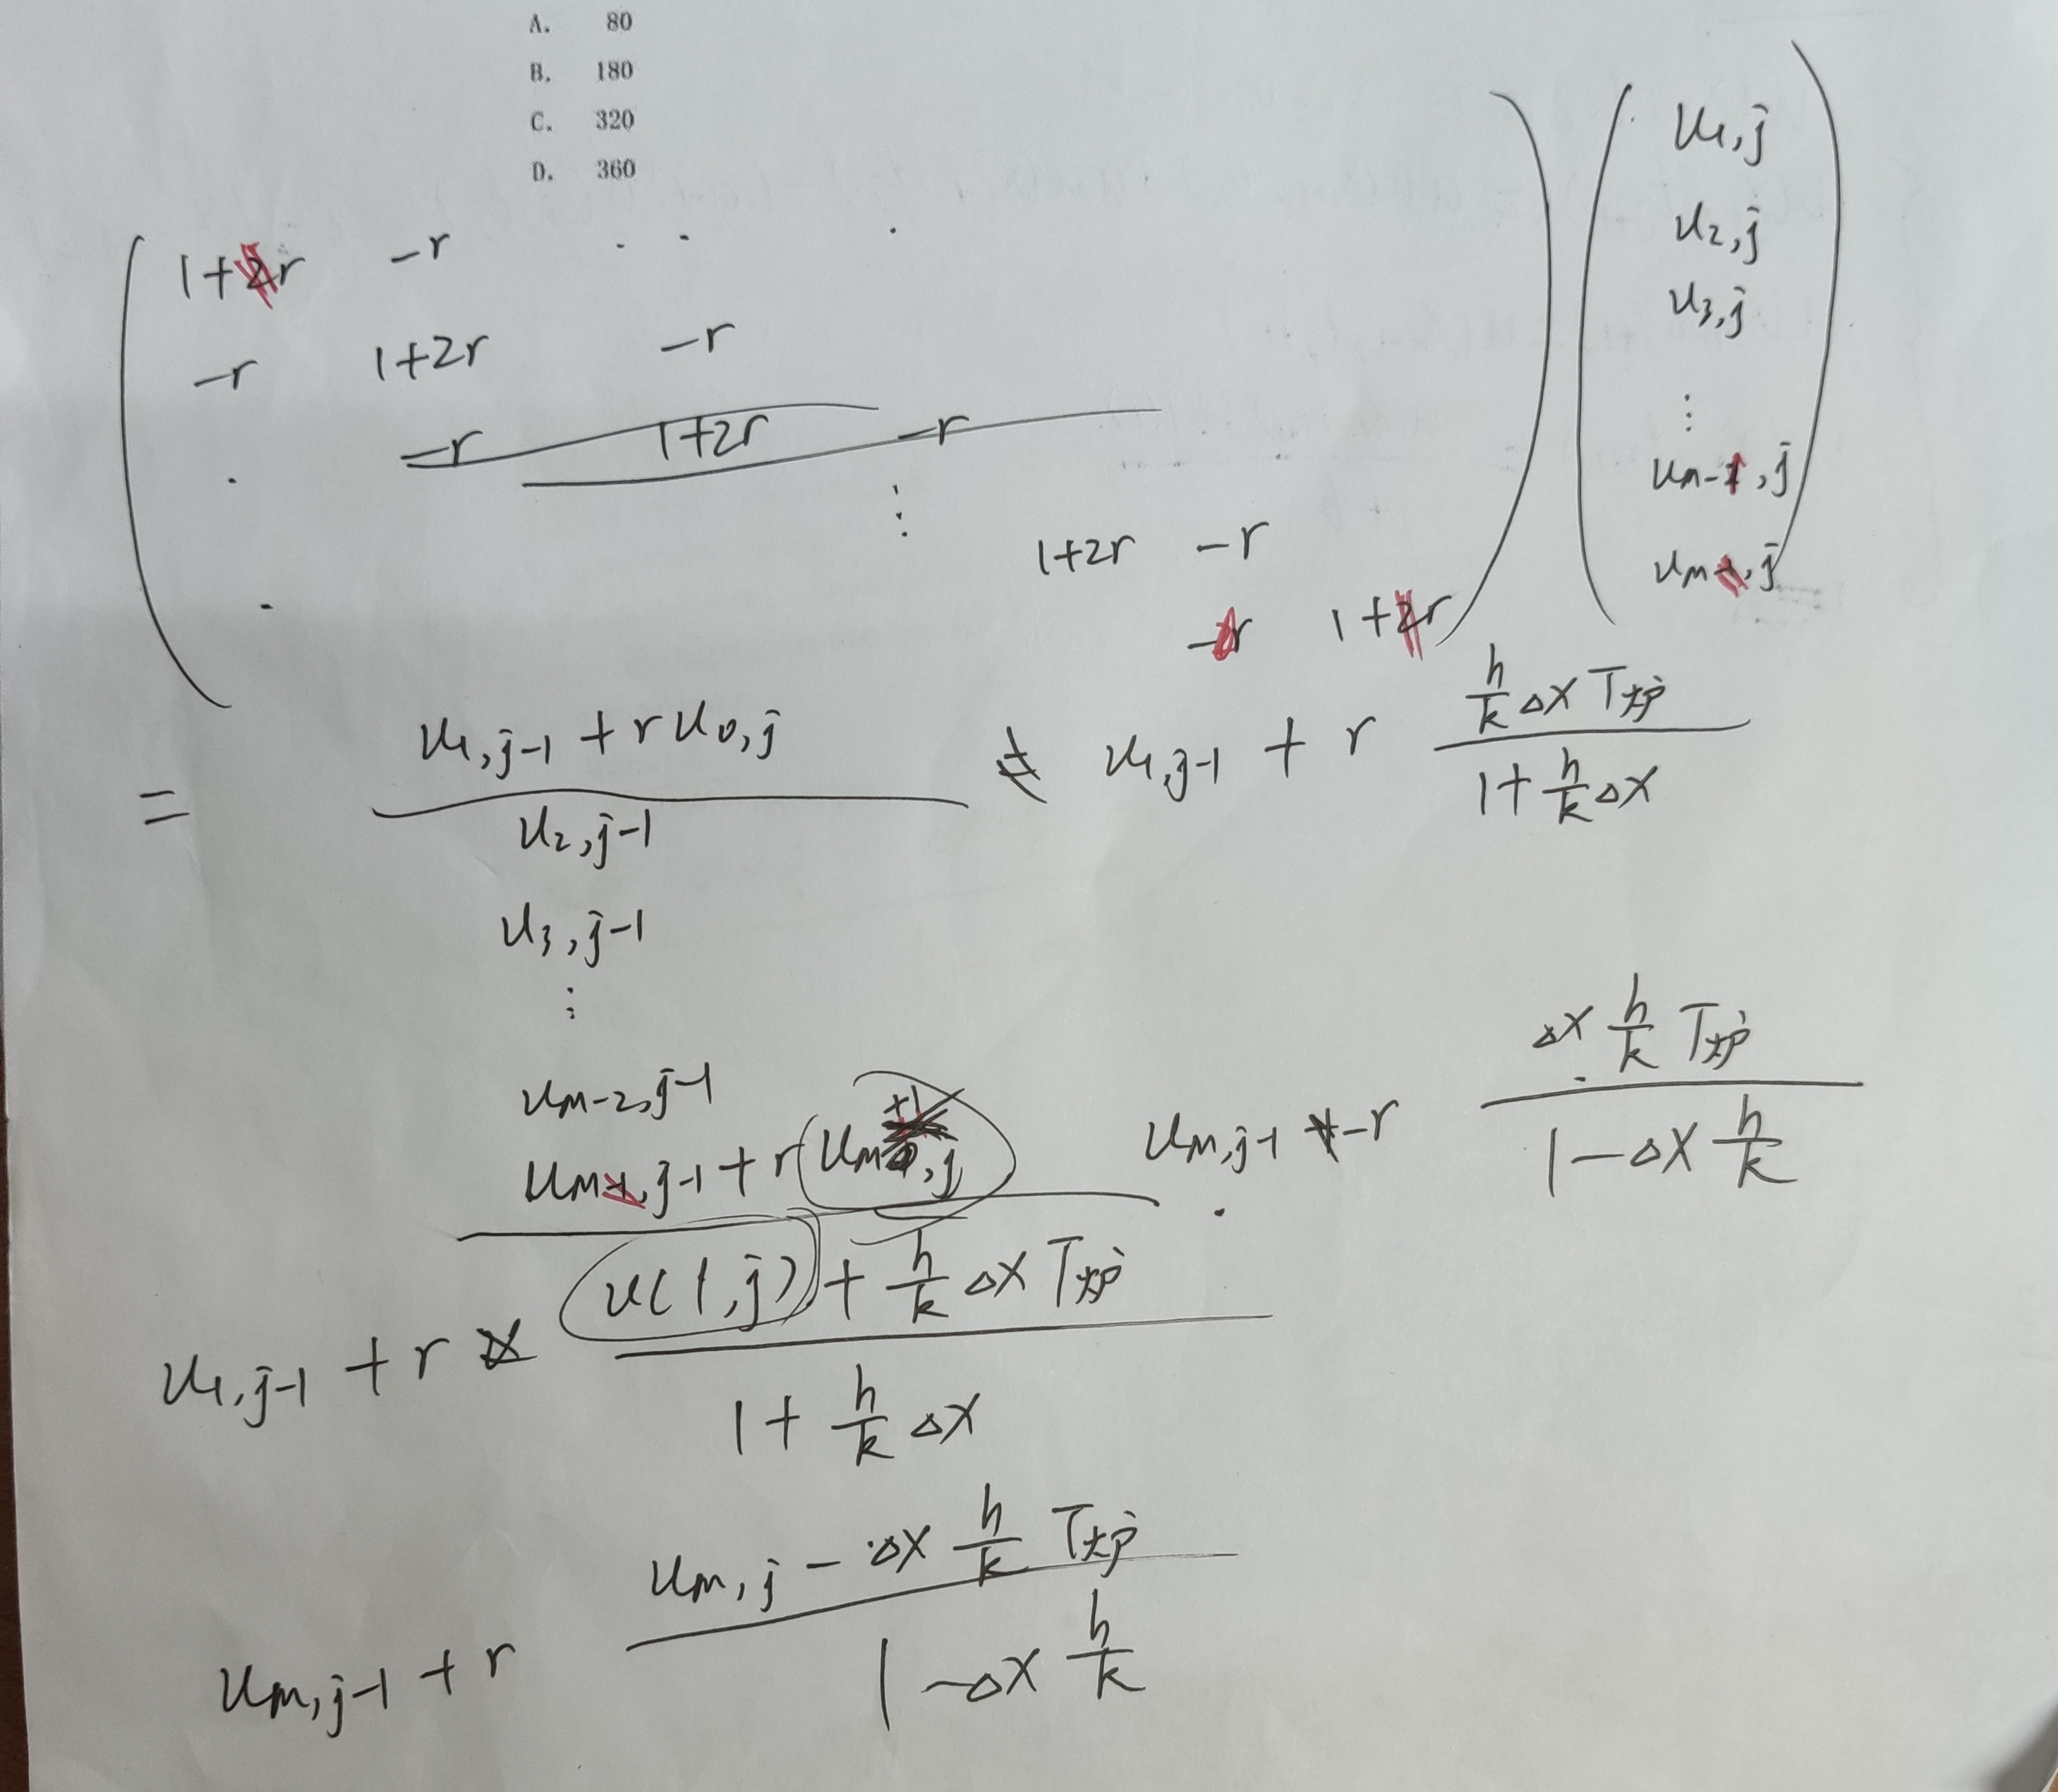 A. 80
B. 180
C. 320
D. 360
1+2r -r . . .
-r 1+2r -r
. -r 1+2r -r
⋮
1+2r -r
. -r 1+2r
u₁,j
u₂,j
u₃,j
⋮
uₘ₋₁,j
uₘ,j
= u₁,j-1 + r u₀,j
u₁,j-1 + r (h/k Δx T炉)/(1 + h/k Δx)
u₂,j-1
u₃,j-1
⋮
uₘ₋₂,j-1
uₘ,j-1 + r uₘ₊₁,j
uₘ,j-1 - r (Δx h/k T炉)/(1 - Δx h/k)
u₁,j-1 + r (u(1,j) + h/k Δx T炉)/(1 + h/k Δx)
uₘ,j-1 + r (uₘ,j - Δx h/k T炉)/(1 - Δx h/k)